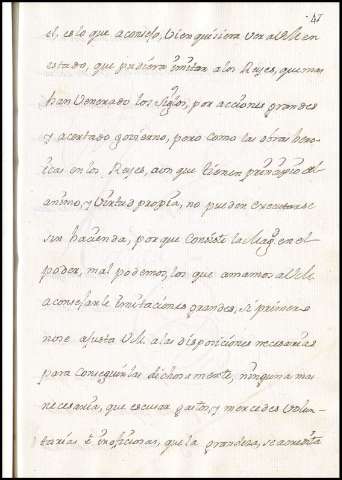 41
el, es lo que aconsejo, Vien quisiera Ver a VM. en
estado, que pudiera imitar a los Reyes, que mas
han Venerado los Siglos, por acciones grandes
y acertado govierno, pero como las obras hero-
icas en los Reyes, aun que tienen principio del
animo, y Virtud propia, no pueden executarse
sin hacienda, porque Consiste la Magd. en el
poder, mal podemos, los que amamos a VM.
aconsejarle imitaciones grandes, si primero
no se ajusta VM. a las disposiciones necesarias
para conseguirlas dichosamente, ninguna mas
necesaria, que escusar gastos, y mercedes Volun-
tarias, e inoficiosas, que la grandeza, se aumenta